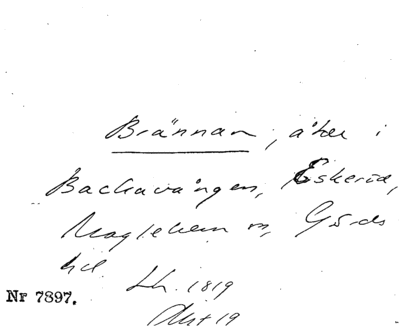 Brännan, åker i
Backavången, Eskeröd,
Maglehem sn, Gärds
hd. Lh. 1819
Nr 7897.
Akt 19